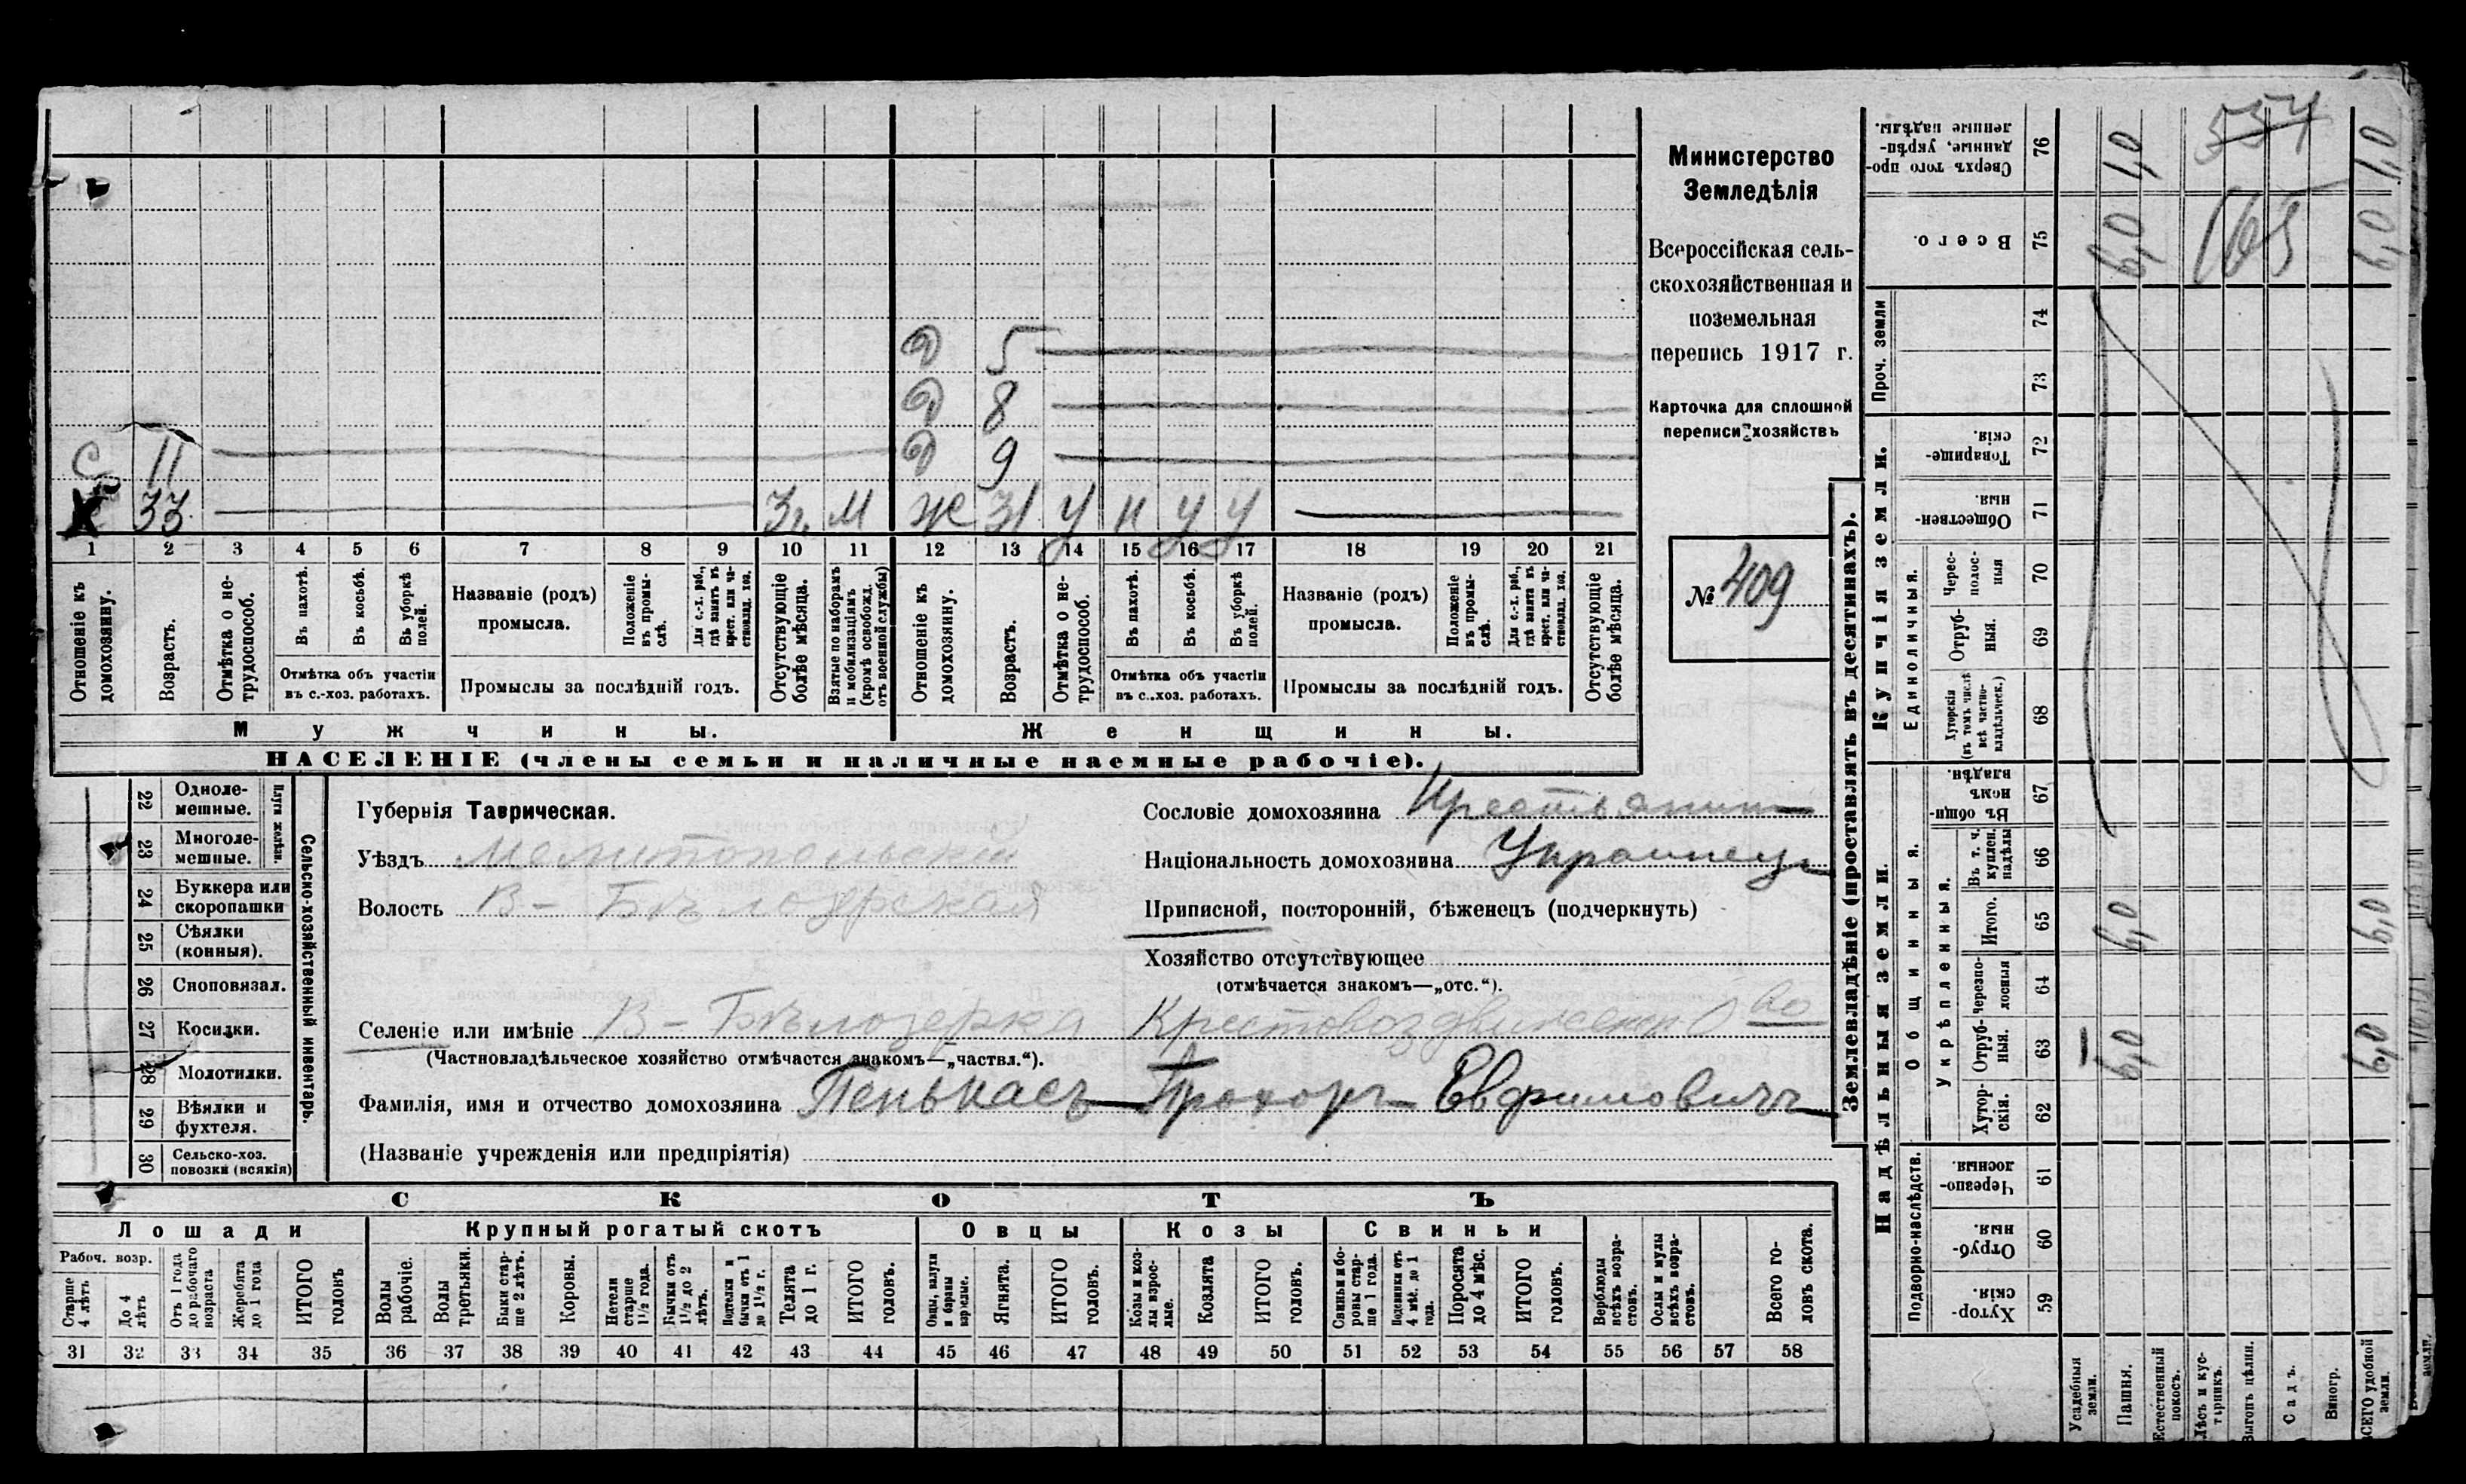 Министерство
Земледѣлія
Всероссійская сель-
скохозяйственная и
поземельная
перепись 1917 г.
Карточка для сплошной
переписи хозяйствъ
№ 409
Д 5
Д 8
С 11 Д 9
Х 33 М Ж 31 У Н У У
1 2 3 4 5 6 7 8 9 10 11 12 13 14 15 16 17 18 19 20 21
Отношеніе къ домохозяину.
Возрастъ.
Отмѣтка о не-трудоспособ.
Въ пахотѣ.
Въ косьбѣ.
Въ уборкѣ полей.
Отмѣтка объ участіи
въ с.-хоз. работахъ.
Названіе (родъ)
промысла.
Положеніе въ промы-слѣ.
Для с.-х. раб., гдѣ занятъ въ крест. или ча-стновлад. хоз.
Промыслы за послѣдній годъ.
Отсутствующіе болѣе мѣсяца.
Взятые по наборамъ и мобилизаціямъ (кромѣ освобожд. отъ военной службы)
Отношеніе къ домохозяину.
Возрастъ.
Отмѣтка о не-трудоспособ.
Въ пахотѣ.
Въ косьбѣ.
Въ уборкѣ полей.
Отмѣтка объ участіи
въ с.-хоз. работахъ.
Названіе (родъ)
промысла.
Положеніе въ промы-слѣ.
Для с.-х. раб., гдѣ занята въ крест. или ча-стновлад. хоз.
Промыслы за послѣдній годъ.
Отсутствующіе болѣе мѣсяца.
Мужчины. Женщины.
НАСЕЛЕНІЕ (члены семьи и наличные наемные рабочіе).
Сельско-хозяйственный инвентарь.
Плуги желѣзн.
22 Одноле-мешные.
23 Многоле-мешные.
24 Буккера или скоропашки
25 Сѣялки (конныя).
26 Сноповязал.
27 Косилки.
28 Молотилки.
29 Вѣялки и фухтеля.
30 Сельско-хоз. повозки (всякія)
Губернія Таврическая.
Уѣздъ Мелитопольскій
Волость В-Бѣлозерская
Селеніе или имѣніе В-Бѣлозерка Крестовоздвиженск. о-во
(Частновладѣльческое хозяйство отмѣчается знакомъ—„частвл.“).
Фамилія, имя и отчество домохозяина Пенькасъ Прохоръ Евфимовичъ
(Названіе учрежденія или предпріятія)
Сословіе домохозяина Крестьянин
Національность домохозяина Украинецъ
Приписной, посторонній, бѣженецъ (подчеркнуть)
Хозяйство отсутствующее
(отмѣчается знакомъ—„отс.“).
СКОТЪ
Лошади Крупный рогатый скотъ Овцы Козы Свиньи
Рабоч. возр.
Старше 4 лѣтъ
До 4 лѣтъ
Отъ 1 года до рабочаго возраста
Жеребята до 1 года
ИТОГО головъ
Волы рабочіе.
Волы третьяки.
Быки стар-ше 2 лѣтъ.
Коровы.
Нетели старше 1½ года.
Бычки отъ 1½ до 2 лѣтъ.
Подтелки и бычки отъ 1 до 1½ г.
Телята до 1 г.
ИТОГО головъ.
Овцы, валухи и бараны взрослые.
Ягнята.
ИТОГО головъ.
Козы и коз-лы взрос-лые.
Козлята
ИТОГО головъ.
Свиньи и бо-ровы стар-ше 1 года.
Подсвинки отъ 4 мѣс. до 1 года.
Поросята до 4 мѣс.
ИТОГО головъ.
Верблюды всѣхъ возра-стовъ.
Ослы и мулы всѣхъ возра-стовъ.
Всего го-ловъ скота.
31 32 33 34 35 36 37 38 39 40 41 42 43 44 45 46 47 48 49 50 51 52 53 54 55 56 57 58
Землевладѣніе (проставлять въ десятинахъ).
Купчія земли.
Надѣльныя земли.
Сверхъ того про-данные, укрѣп-ленные надѣлы. 76 4,0 554 4,0
Всего. 75 6,0 165 6,0
Проч. земли 74
73
Товарище-скія. 72
Обществен-ныя. 71
Единоличныя.
Черес-полос-ныя 70
Отруб-ныя. 69
Хуторскія (въ томъ числѣ всѣ частно-владѣльческ.) 68
Общинныя.
Въ общи-номъ владѣн. 67
Укрѣпленныя.
Въ т. ч. куплен. надѣлы 66
Итого. 65 6,0 6,0
Черезпо-лосныя 64
Отруб-ныя. 63 6,0 6,0
Хутор-скія. 62
Подворно-наслѣдств.
Черезпо-лосныя. 61
Отруб-ныя. 60
Хутор-скія. 59
Усадебныя земли.
Пашня.
Естественный покосъ.
Лѣсъ и кус-тарникъ.
Выгонъ цѣлин.
Садъ.
Виногр.
ВСЕГО удобной земли.